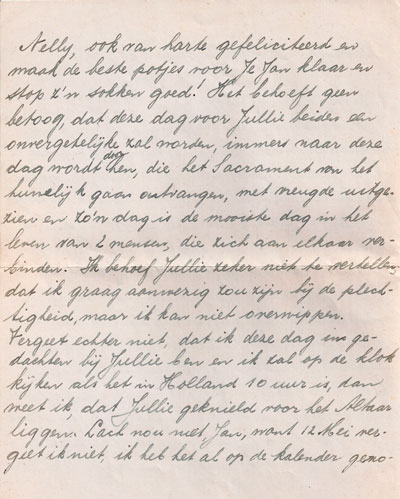 Nelly, ook van harte gefeliciteerd en
maak de beste potjes voor Je Jan klaar en
stop z'n sokken goed! Het behoeft geen
betoog, dat deze dag voor Jullie beiden een
onvergetelijke zal worden, immers naar deze
dag wordt door hen, die het Sacrament van het
huwelijk gaan ontvangen, met vreugde uitge-
zien en zo'n dag is de mooiste dag in het
leven van 2 mensen, die zich aan elkaar ver-
binden. Ik behoef Jullie zeker niet te vertellen,
dat ik graag aanwezig zou zijn bij de plech-
tigheid, maar ik kan niet overwippen.
Vergeet echter niet, dat ik deze dag in ge-
dachten bij Jullie ben en ik zal op de klok
kijken als het in Holland 10 uur is, dan
weet ik, dat Jullie geknield voor het Altaar
liggen. Lach nou niet, Jan, want 12 Mei ver-
geet ik niet, ik heb het al op de kalender geno-